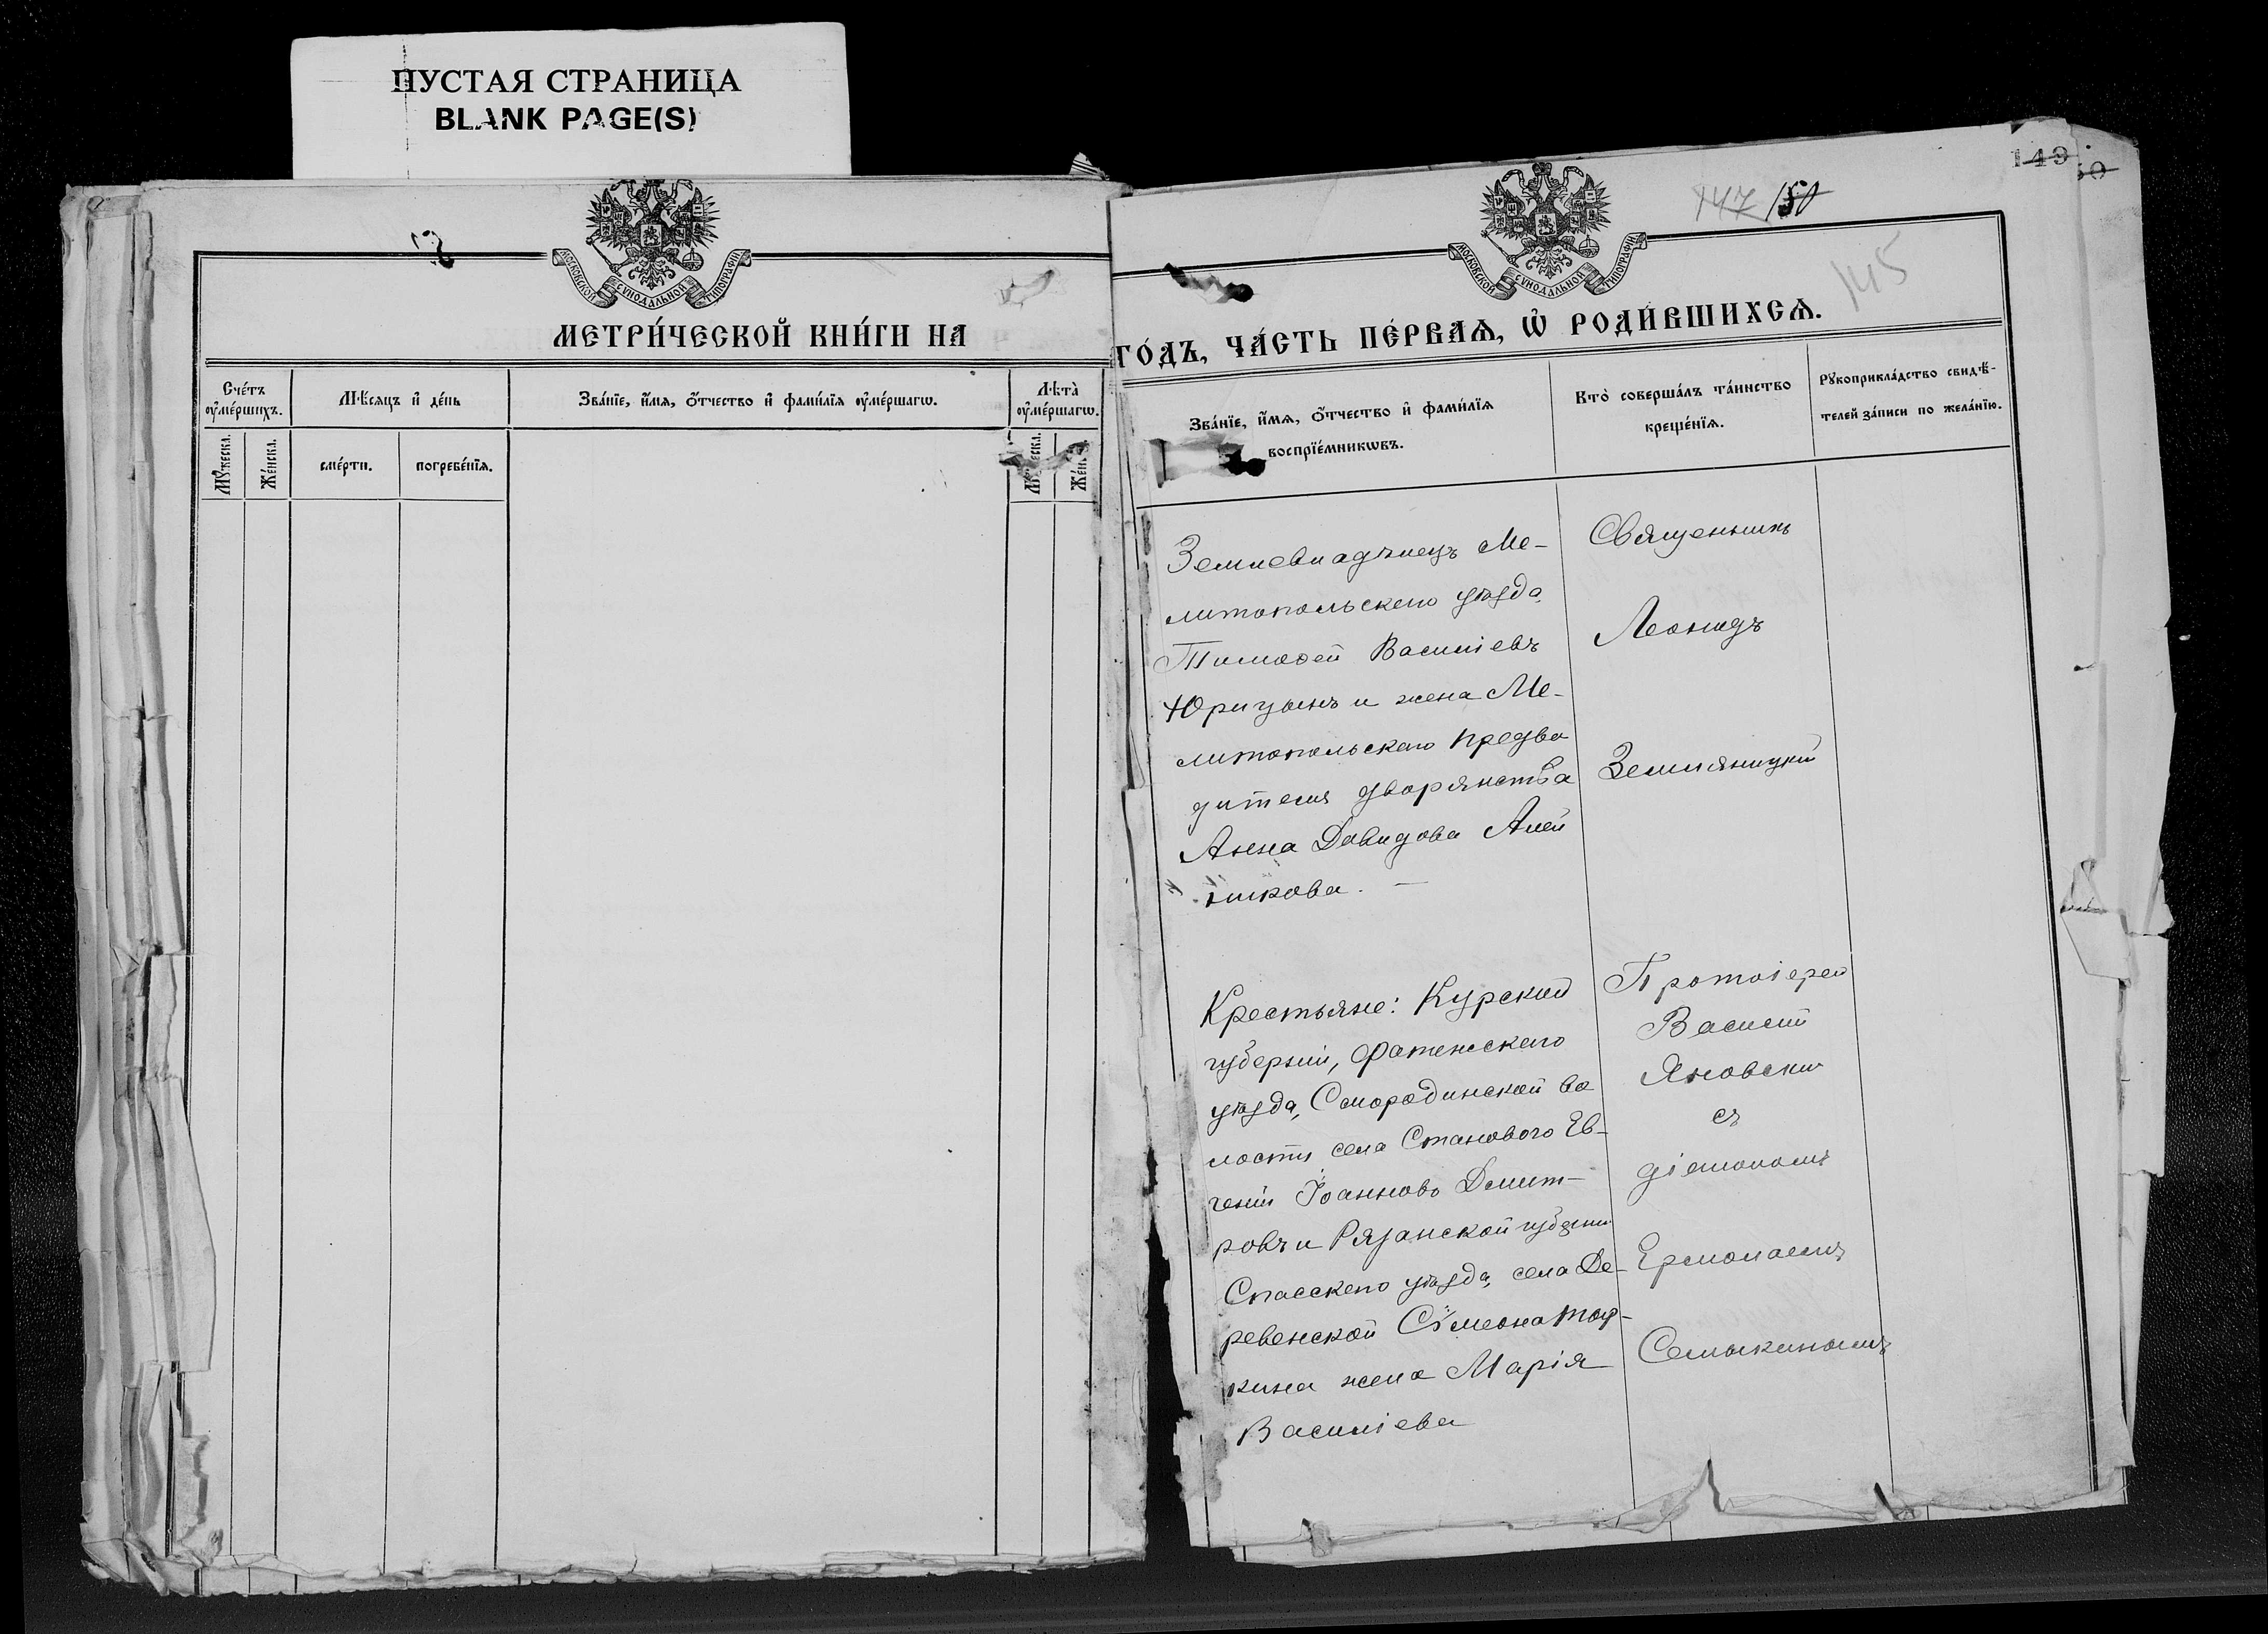 ПУСТАЯ СТРАНИЦА
BLANK PAGE(S)
МОСКОВСКОЙ СУНОДАЛЬНОЙ ТИПОГРАФІИ
МЕТРИ́ЧЕСКОЙ КНИ́ГИ НА
Сче́тъ оу҆ме́ршихъ.
Мѣ́сяцъ и҆ де́нь
Зва́нїе, и҆́мѧ, ѻ҆́тчество и҆ фами́лїѧ оу҆ме́ршагѡ.
Лѣта̀ оу҆ме́ршагѡ.
Мꙋ́жеска.
Же́нска.
сме́рти.
погребе́нїѧ.
149
147 150
145
МОСКОВСКОЙ СУНОДАЛЬНОЙ ТИПОГРАФІИ
ГО́ДЪ, ЧА́СТЬ ПЕ́РВАѦ, Ѡ҆ РОДИ́ВШИХСѦ.
Зва́нїе, и҆́мѧ, ѻ҆́тчество и҆ фами́лїѧ
воспрїе́мникѡвъ.
Кто̀ соверша́лъ та́инство
креще́нїѧ.
Рꙋкоприкла́дство свидѣ́-
телей за́писи по жела́нїю.
Землевладѣлецъ Ме-
литопольскаго уѣзда
Тимоѳей Василіевъ
Юрицынъ и жена Ме-
литопольскаго предво
дителя дворянства
Анна Давидова Алей
никова. —
Священникъ
Леонидъ
Земляницкій
Крестьяне: Курской
губерніи, Фатежскаго
уѣзда, Смородинской во
лости села Становаго Ев-
геній Іоанновъ Дмит-
ровъ и Рязанской губерніи
Спасскаго уѣзда, села Де-
ревенской Сѵмеона
кина жена Марія
Василіева
Протоіерей
Василій
Яновскій
съ
діакономъ
Ермолаемъ
Семыкинымъ